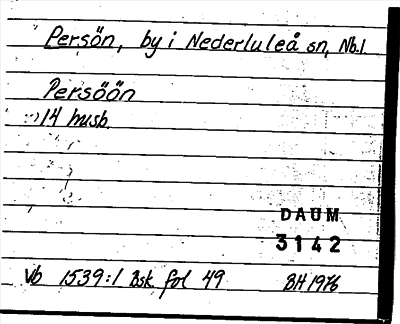 Persön, by i Nederluleå sn, Nb.l.
Persöön
14 husb.
DAUM
3142
Vb 1539:1 Bsk fol 49 BH 1976